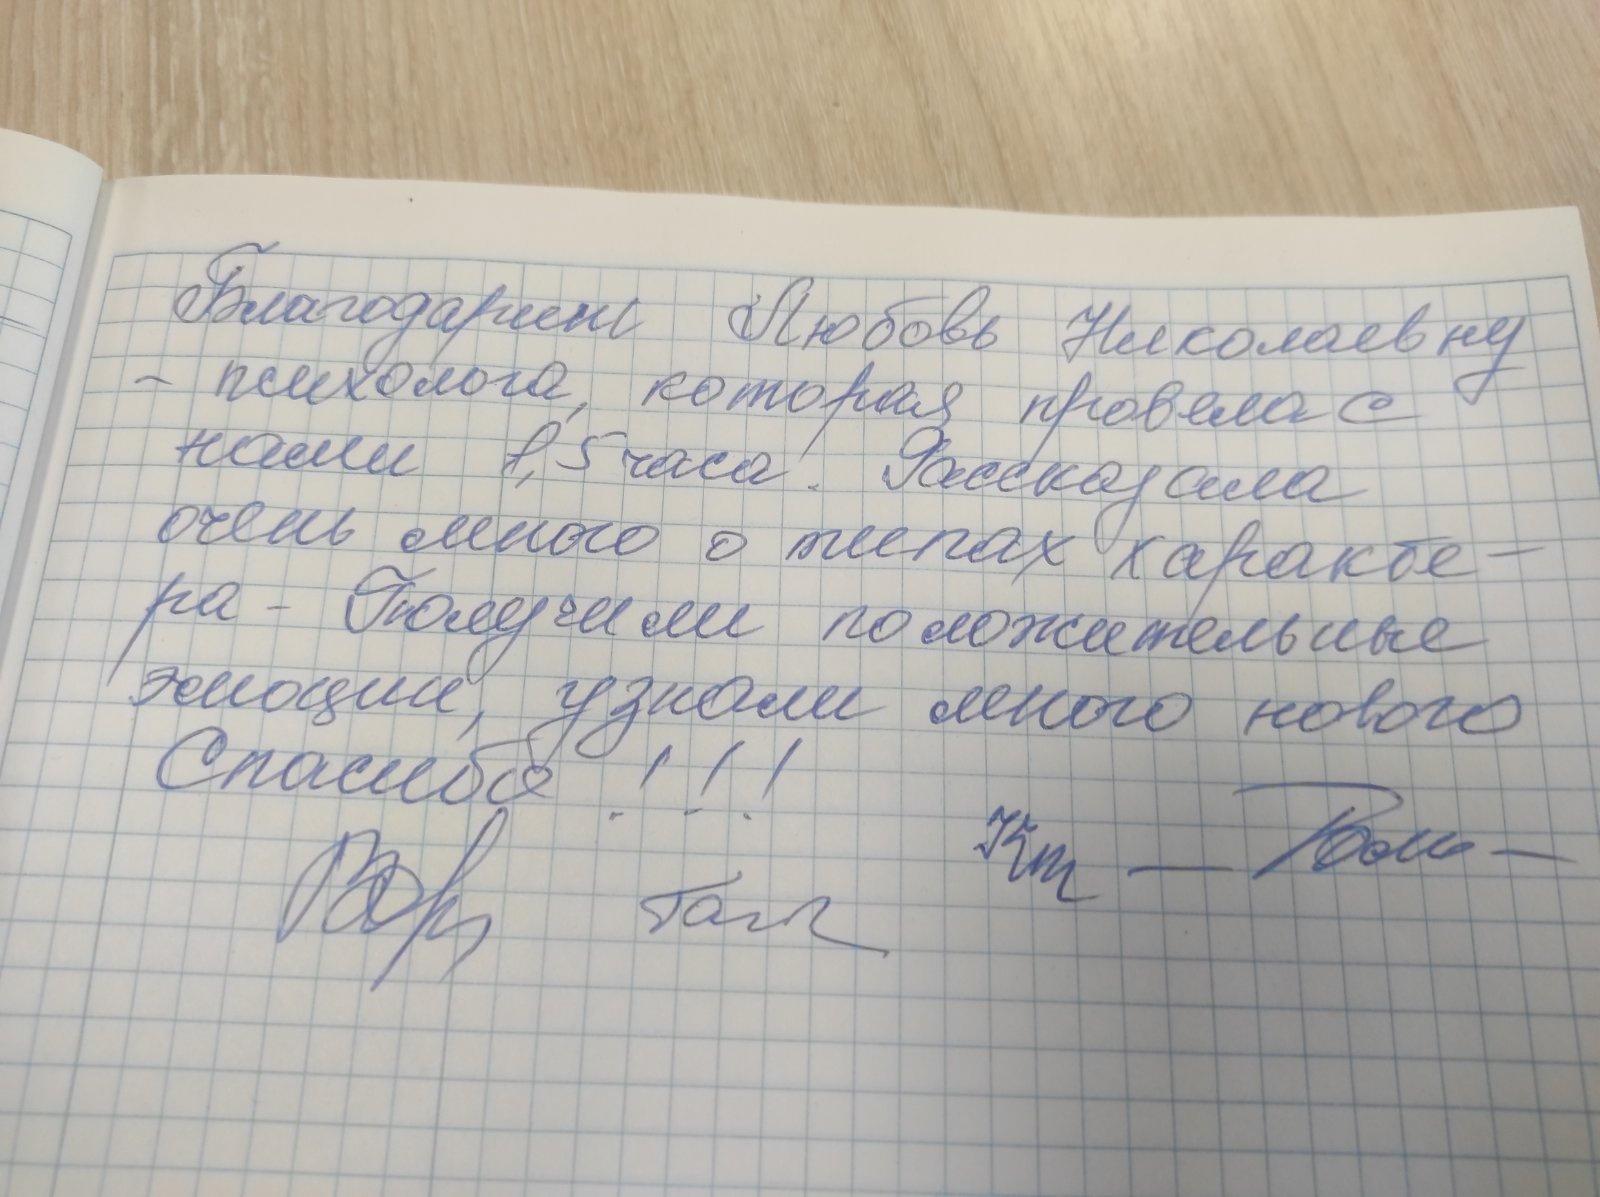 Благодарим Любовь Николаевну
- психолога, которая провела с
нами 1,5 часа. Рассказала
очень много о типах характе-
ра - Получили положительные
эмоции, узнали много нового
Спасибо !!!